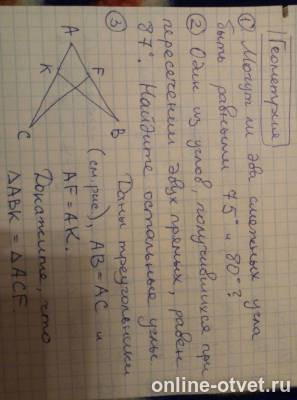 Геометрия
① Могут ли два смежных угла
быть равными 75° и 80°?
② Один из углов, получившихся при
пересечении двух прямых, равен
87°. Найдите остальные углы.
③ Даны треугольники
(см.рис), AB=AC и
AF=AK.
Докажите, что
△ABK = △ACF
A
K
F
B
C
online-otvet.ru